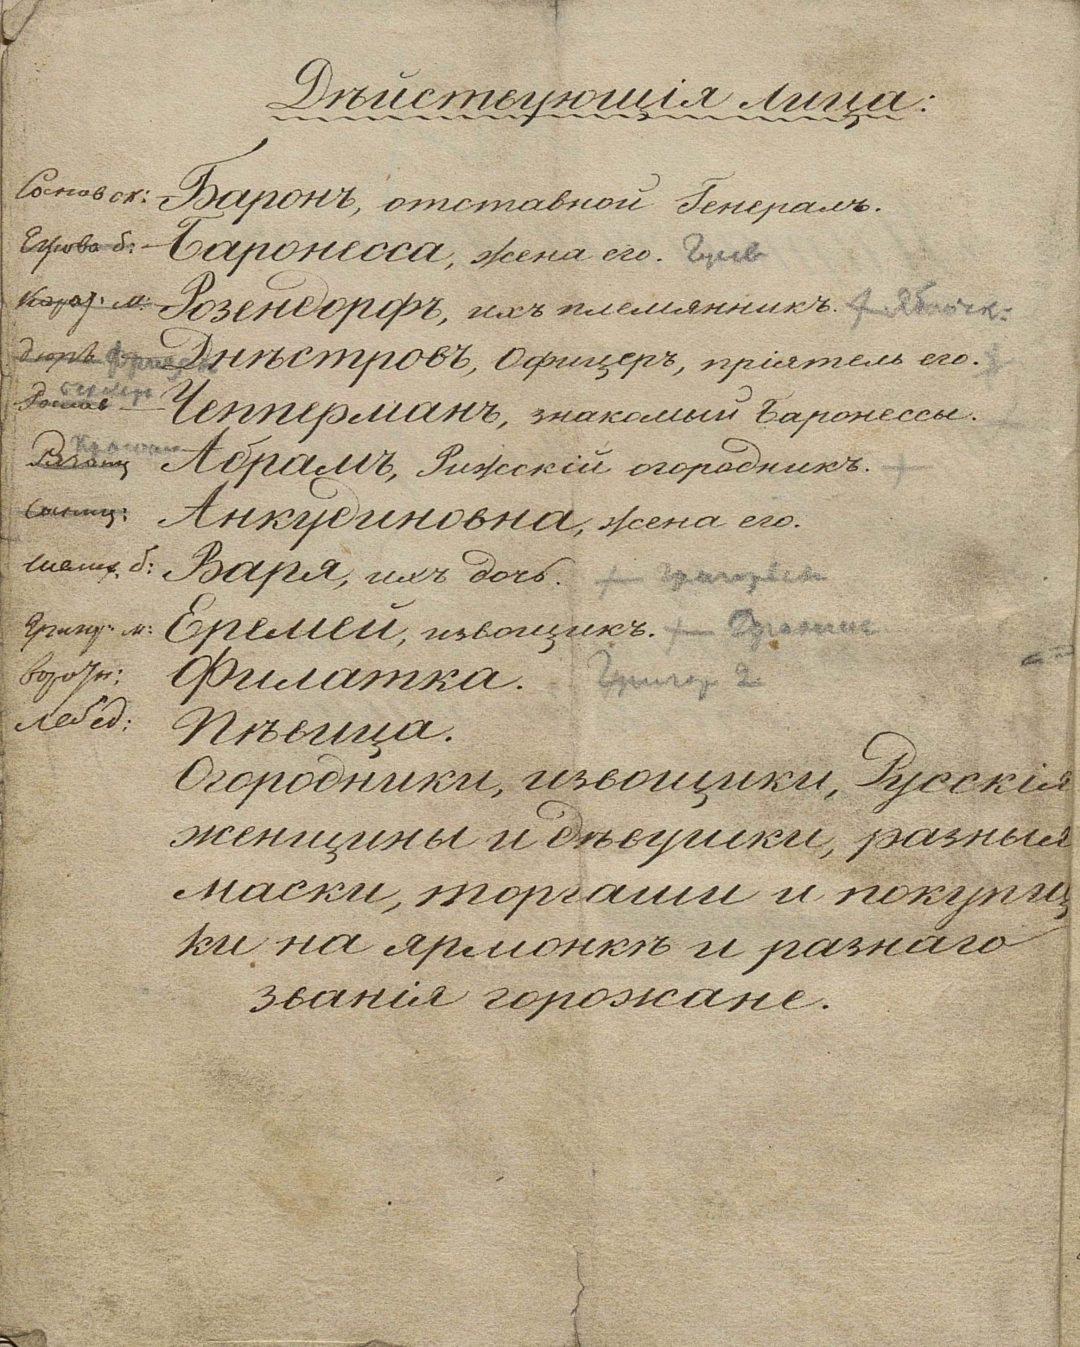 Дѣйствующія лица:
Сосновск: Баронъ, отставной Генералъ.
Баронесса, жена его.
Розендорфъ, ихъ племянникъ. Яблочк:
Днѣстровъ, Офицеръ, пріятель его.
Чепперманъ, знакомый Баронессы.
Абрамъ, Рижскій огородникъ.
Анкудиновна, жена его.
Варя, ихъ дочь.
Еремей, извощикъ.
Филатка. Григор 2
Лебед: Пѣвица.
Огородники, извощики, Русскія
женщины и дѣвушки, разныя
маски, торгаши и покупщ
ки на ярмонкѣ и разнаго
званія горожане.